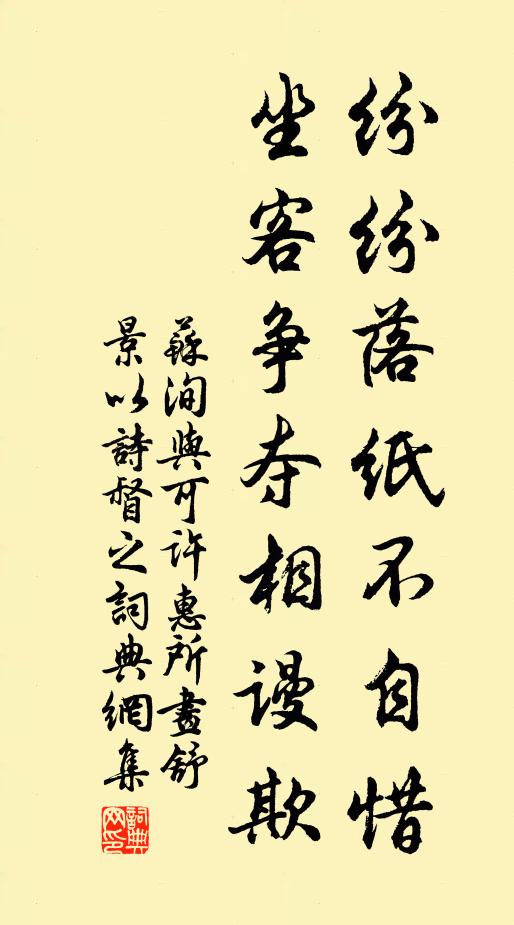 纷纷落纸不自惜
坐客争夺相谩欺
蘇洵與可許惠所畫舒
景以詩督之詞典網集
詞典
网印